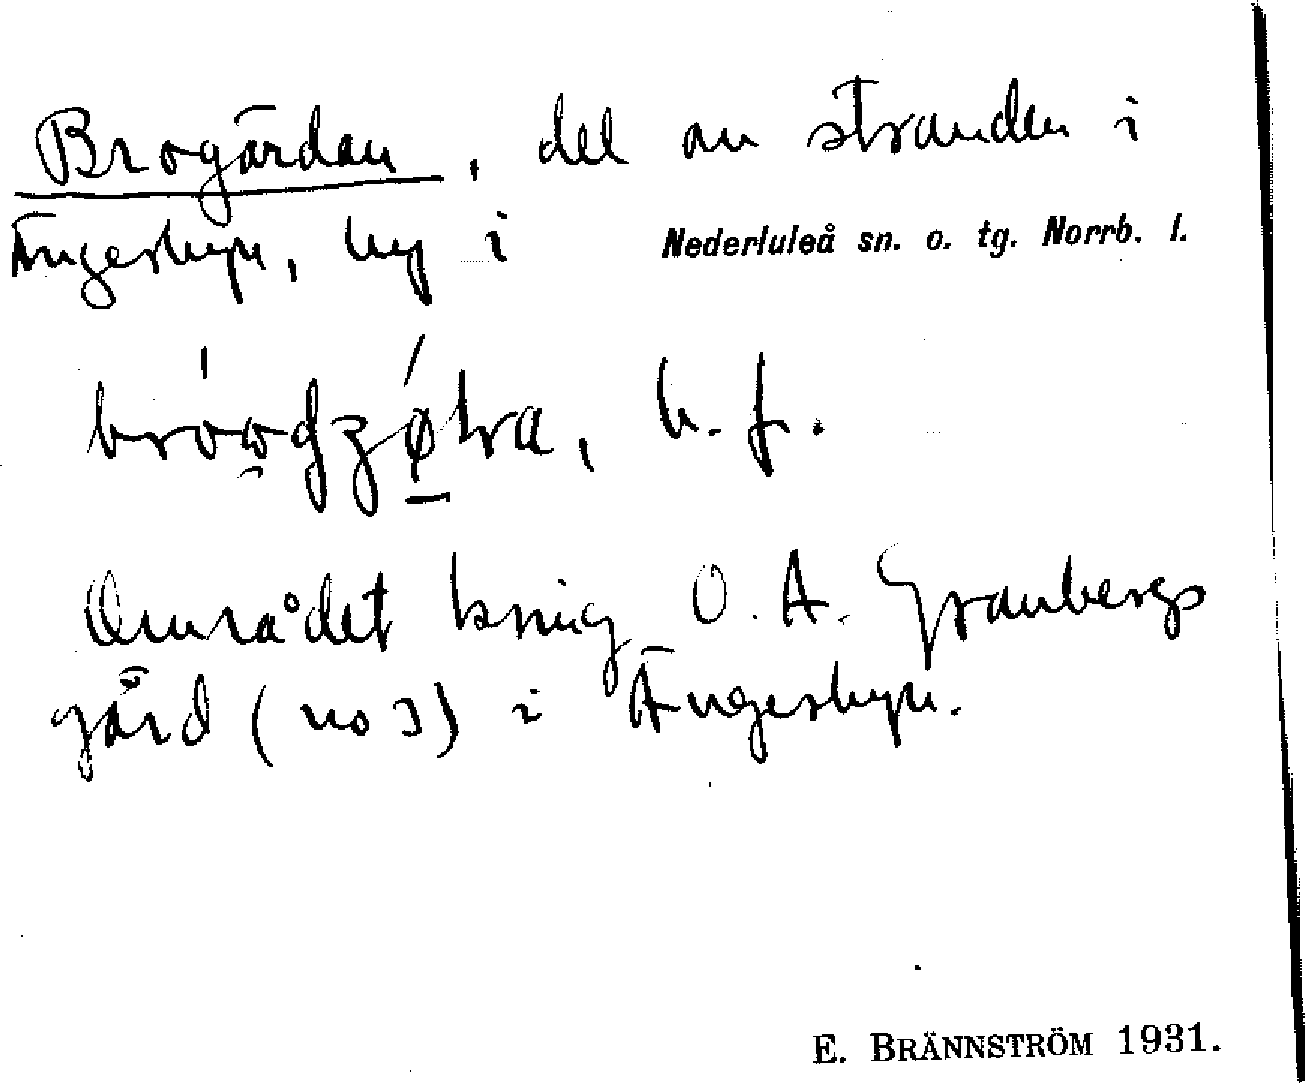 Brogärdan, del av stranden i
Ängesbyn, by i Nederluleå sn. o. tg. Norrb. l.
b. f.
Området kring O. A. Granbergs
gård (no 3) i Ängesbyn.
E. BRÄNNSTRÖM 1931.